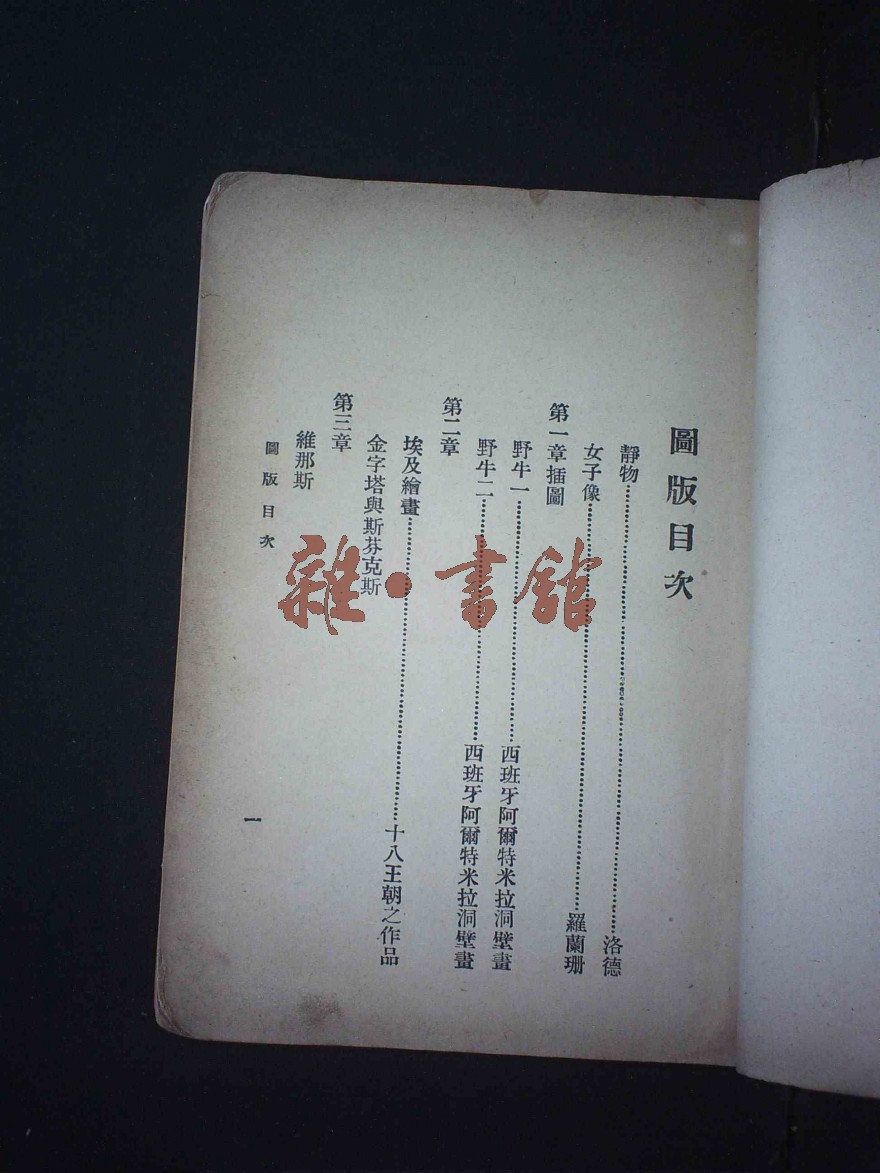 圖版目次
靜物……洛德
女子像……羅蘭珊
第一章插圖
野牛一……西班牙阿爾特米拉洞壁畫
野牛二……西班牙阿爾特米拉洞壁畫
第二章
埃及繪畫……十八王朝之作品
金字塔與斯芬克斯
第三章
維那斯
圖版目次
一
雜·書館